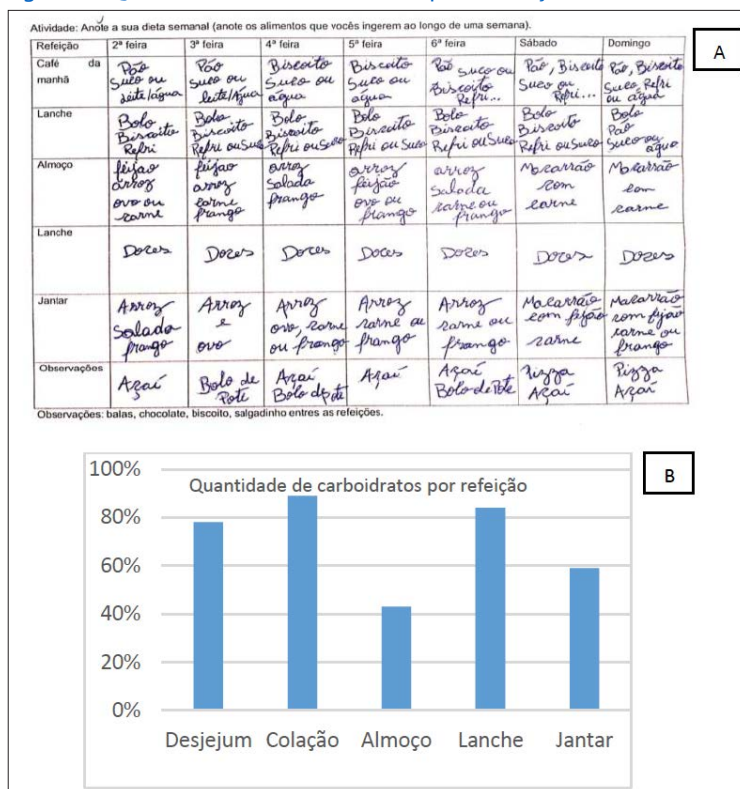 Atividade: Anote a sua dieta semanal (anote os alimentos que vocês ingerem ao longo de uma semana).
A
Refeição 2ª feira 3ª feira 4ª feira 5ª feira 6ª feira Sábado Domingo
Café da manhã
Pão Suco ou leite/água
Pão Suco ou leite/água
Biscoito Suco ou água
Biscoito Suco ou água
Pão Suco ou Biscoito Refri...
Pão, Biscoito Suco ou Refri...
Pão, Biscoito Suco, Refri ou água
Lanche
Bolo Biscoito Refri
Bolo Biscoito Refri ou Suco
Bolo Biscoito Refri ou Suco
Bolo Biscoito Refri ou Suco
Bolo Biscoito Refri ou Suco
Bolo Biscoito Refri ou Suco
Bolo Pão Suco ou água
Almoço
feijão arroz ovo ou carne
feijão arroz carne frango
arroz Salada frango
arroz feijão ovo ou frango
arroz Salada carne ou frango
Macarrão com carne
Macarrão com carne
Lanche
Doces Doces Doces Doces Doces Doces Doces
Jantar
Arroz Salada frango
Arroz e ovo
Arroz ovo, carne ou frango
Arroz carne ou frango
Arroz carne ou frango
Macarrão com feijão carne
Macarrão com feijão carne ou frango
Observações
Açaí
Bolo de Pote
Açaí Bolo de pote
Açaí
Açaí Bolo de Pote
Pizza Açaí
Pizza Açaí
Observações: balas, chocolate, biscoito, salgadinho entres as refeições.
B
Quantidade de carboidratos por refeição
100%
80%
60%
40%
20%
0%
Desjejum Colação Almoço Lanche Jantar